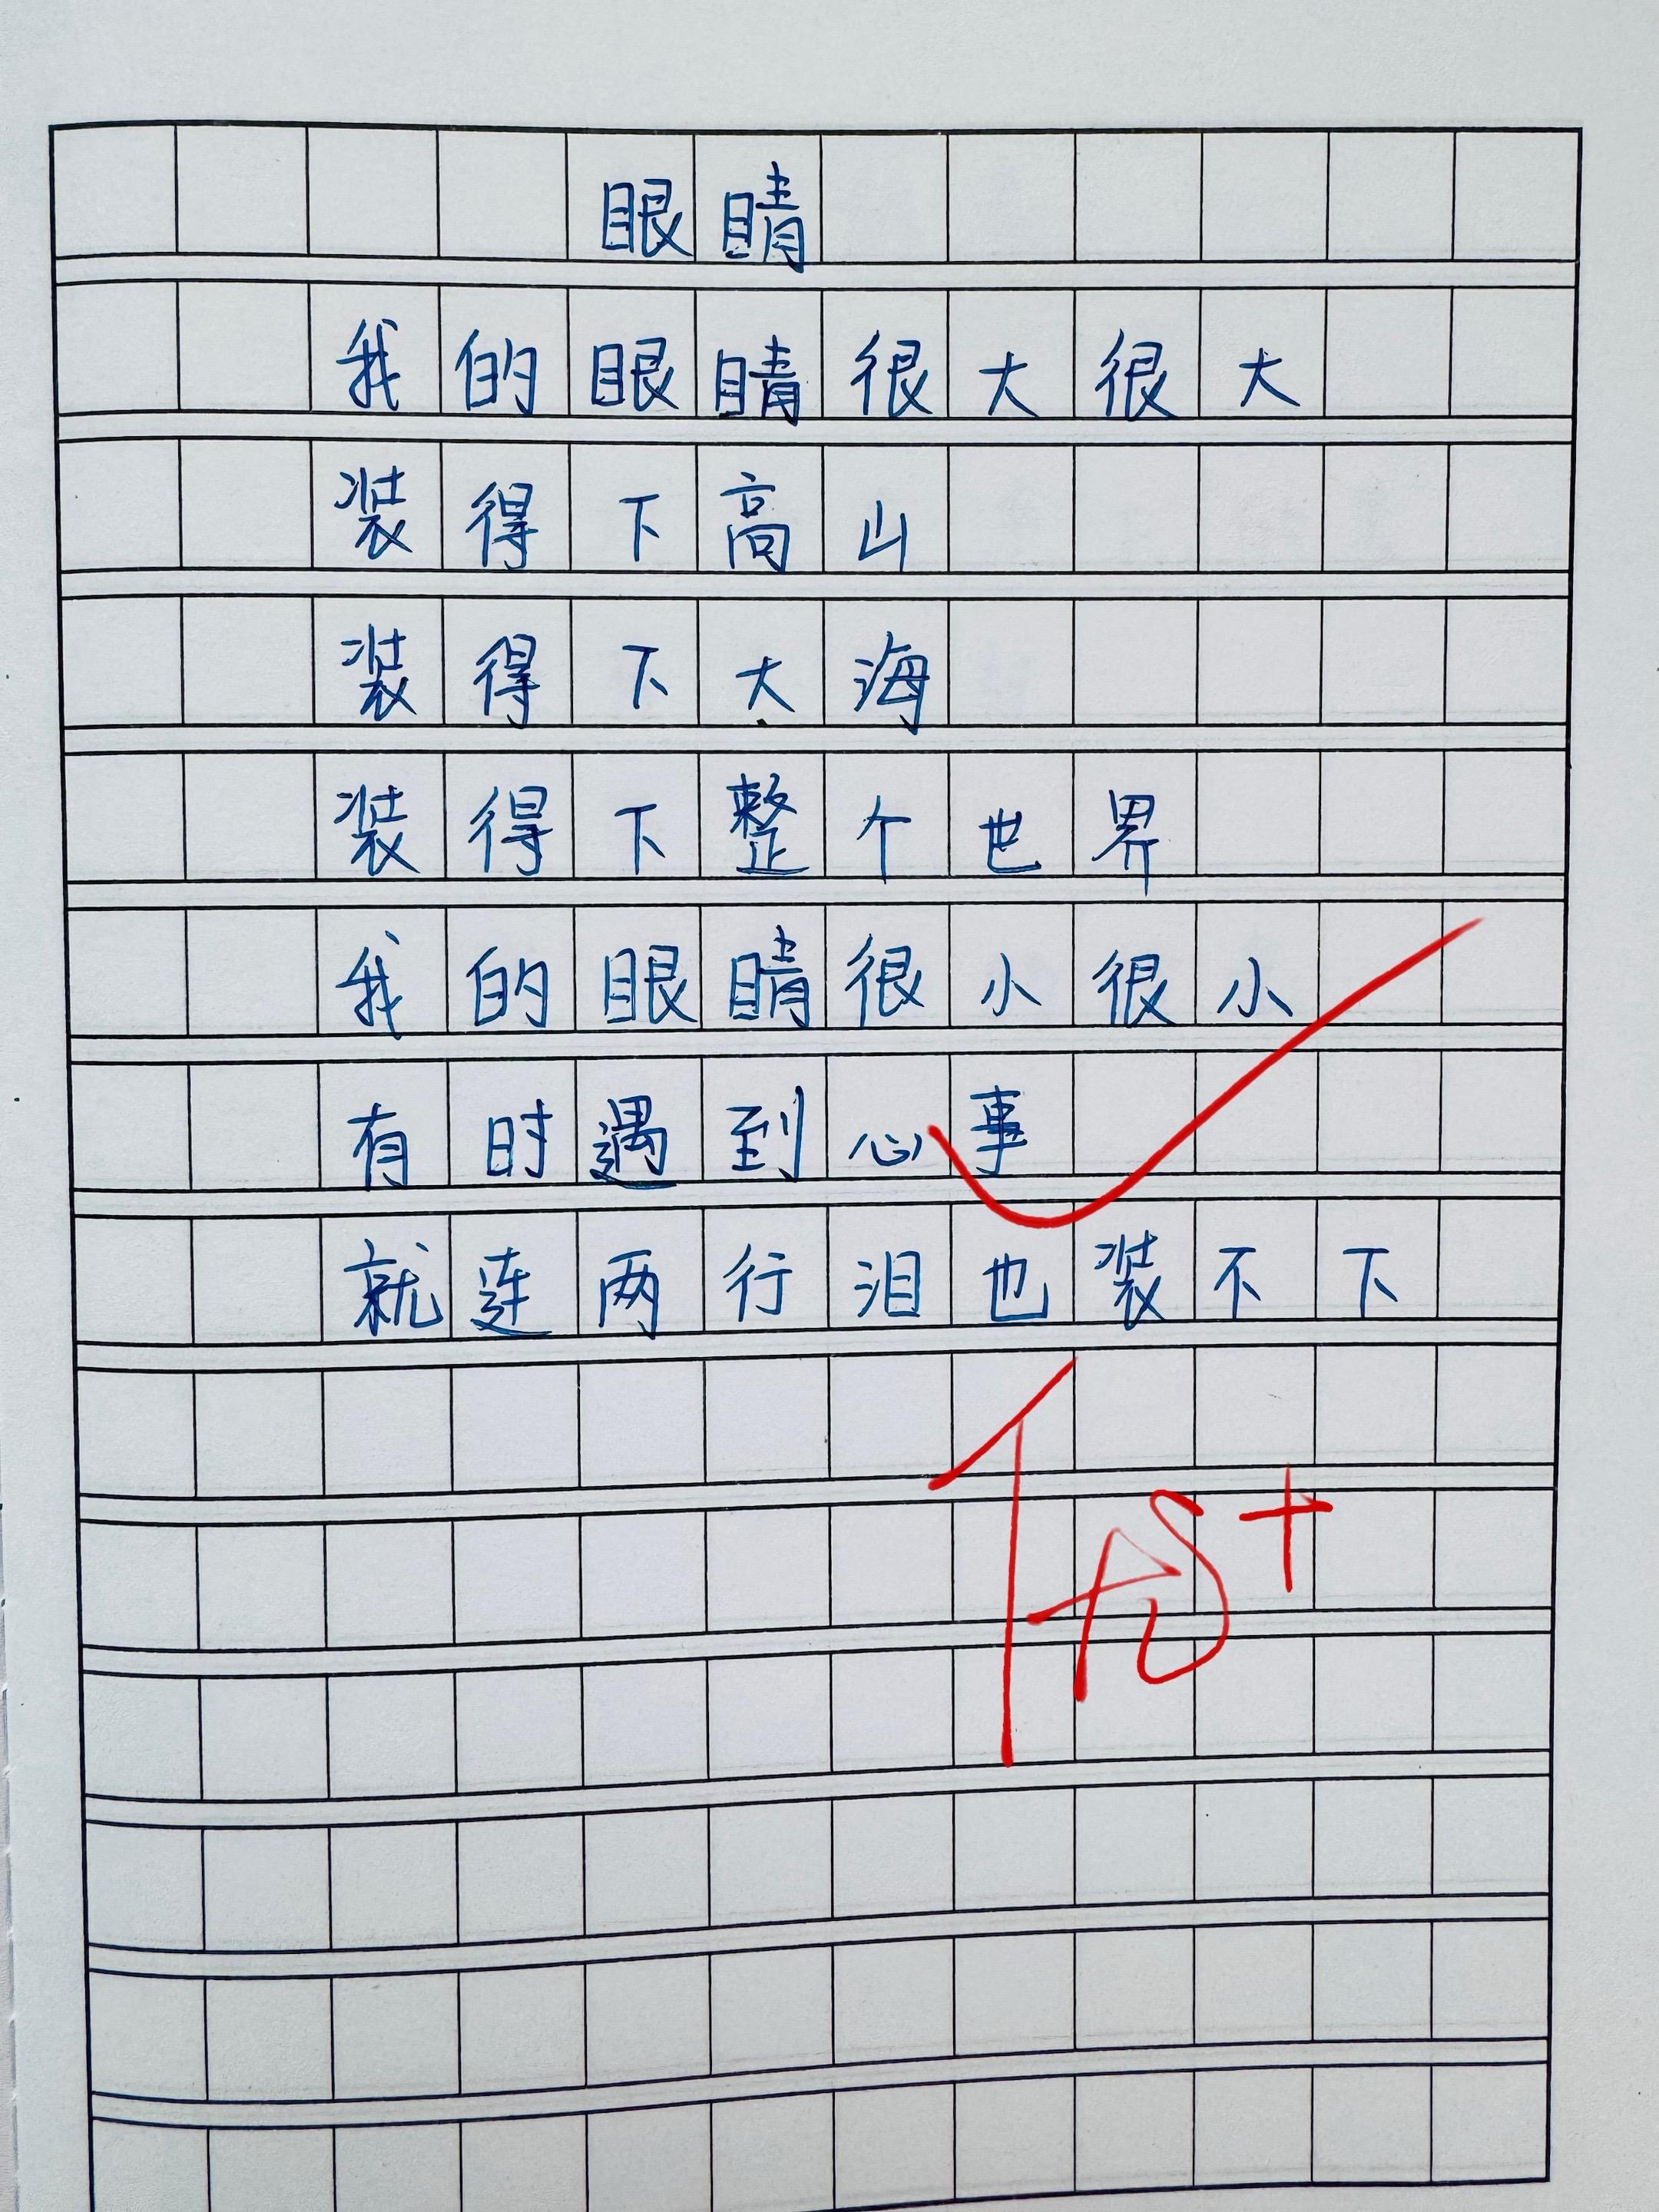 眼睛
我的眼睛很大很大
装得下高山
装得下大海
装得下整个世界
我的眼睛很小很小
有时遇到心事
就连两行泪也装不下
优+